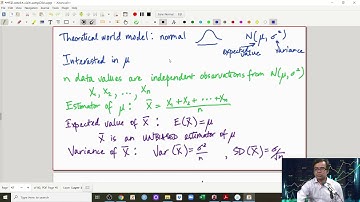 Theoretical world model: normal N(μ, σ²)
expected value variance
Interested in μ
n data values are independent observations from N(μ, σ²)
X₁, X₂, ..., Xₙ
Estimator of μ: X̄ = X₁+X₂+···+Xₙ / n
Expected value of X̄: E(X̄) = μ
X̄ is an UNBIASED estimator of μ
Variance of X̄: Var(X̄) = σ²/n, SD(X̄) = σ/√n